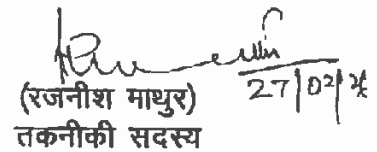 27/02/
(रजनीश माथुर)
तकनीकी सदस्य